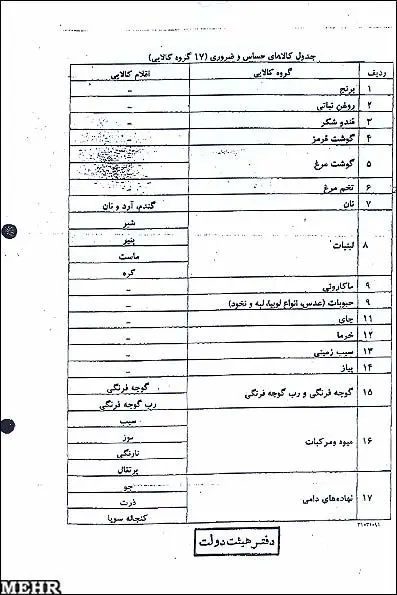 جدول کالاهای حساس و ضروری (۱۷ گروه کالایی)
ردیف گروه کالایی اقلام کالایی
۱ برنج -
۲ روغن نباتی -
۳ قند و شکر -
۴ گوشت قرمز -
۵ گوشت مرغ
۶ تخم مرغ -
۷ نان گندم، آرد و نان
۸ لبنیات شیر
پنیر
ماست
کره
۹ ماکارونی -
۹ حبوبات (عدس، انواع لوبیا، لپه و نخود) -
۱۱ چای -
۱۲ خرما -
۱۳ سیب زمینی -
۱۴ پیاز -
۱۵ گوجه فرنگی و رب گوجه فرنگی گوجه فرنگی
رب گوجه فرنگی
۱۶ میوه ومرکبات سیب
موز
نارنگی
پرتقال
۱۷ نهاده‌های دامی جو
ذرت
کنجاله سویا
دفتر هیئت دولت
MEHR